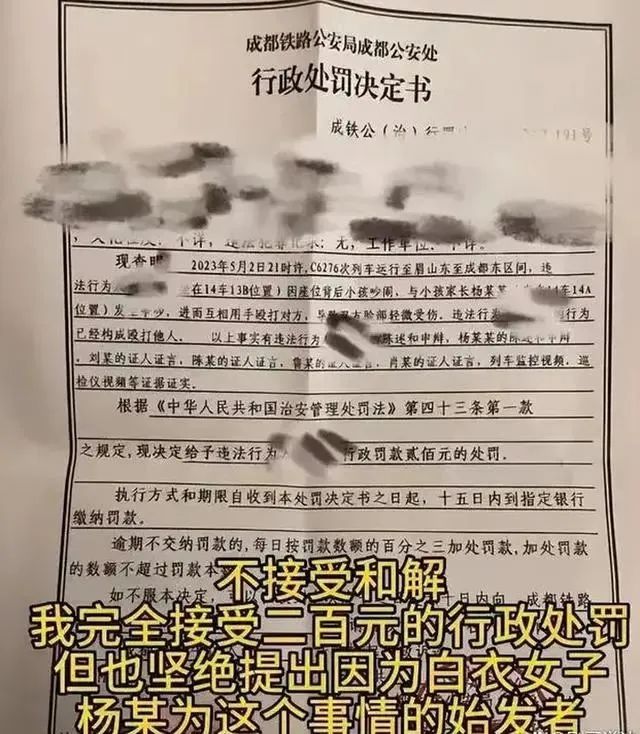 成都铁路公安局成都公安处
行政处罚决定书
成铁公(治)行罚 191号
违法犯罪记录:无,工作单位:不详。
现查明 2023年5月2日21时许,C6276次列车运行至眉山东至成都东区间,违
法行为 在14车13B位置)因座位背后小孩吵闹,与小孩家长杨某某 14车14A
位置)发生 ,进而互相用手殴打对方,导致双方脸部轻微受伤。违法行为 的行为
已经构成殴打他人。 以上事实有违法行为 陈述和申辩,杨某某的陈述和申辩,
刘某的证人证言,陈某的证人证言,鲁某的证人证言,肖某的证人证言,列车监控视频,巡
检仪视频等证据证实。
根据《中华人民共和国治安管理处罚法》第四十三条第一款
之规定,现决定给予违法行为 行政罚款贰佰元的处罚。
执行方式和期限自收到本处罚决定书之日起,十五日内到指定银行
缴纳罚款。
逾期不交纳罚款的,每日按罚款数额的百分之三加处罚款,加处罚款
的数额不超过罚款本
如不服本决定, 十日内向 成都铁路
不接受和解
我完全接受二百元的行政处罚
但也坚绝提出因为白衣女子
杨某为这个事情的始发者